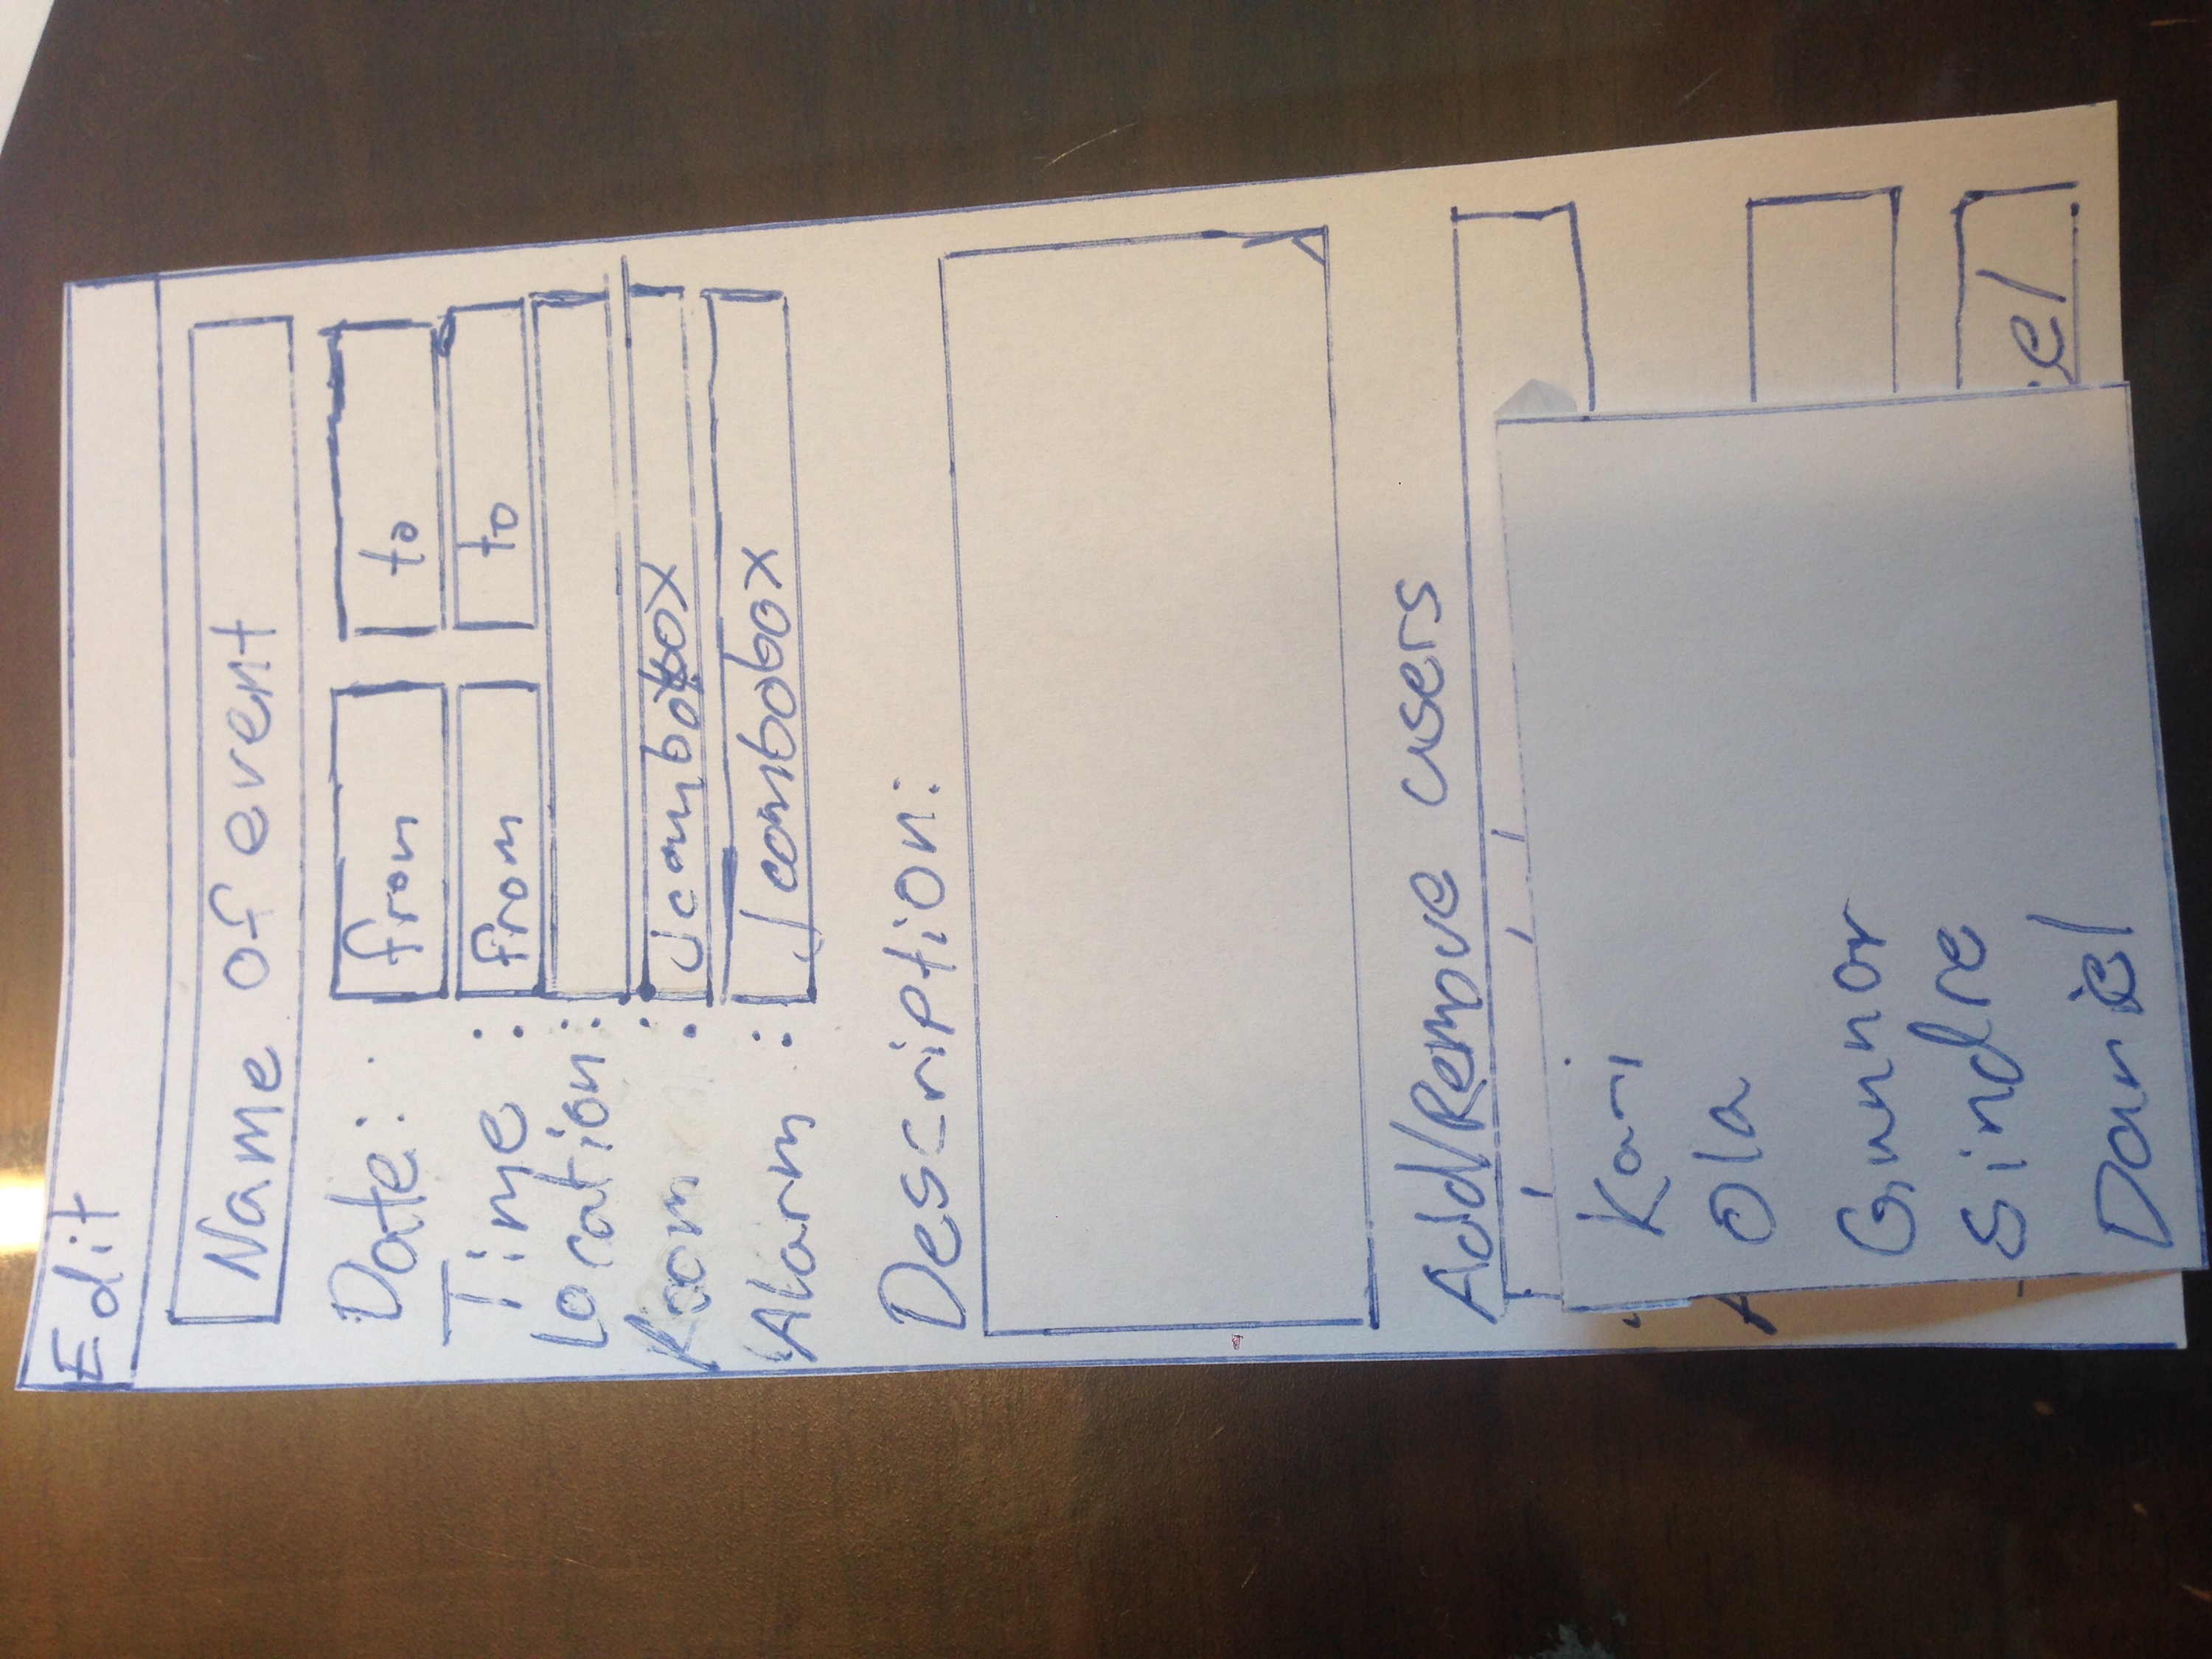 Edit
Name of event
Date: from to
Time : from to
Location:
Room : Jcombobox
Alarm : Jcombobox
Description:
Add/Remove users
Kari
Ola
Gunnar
Sindre
Daniel